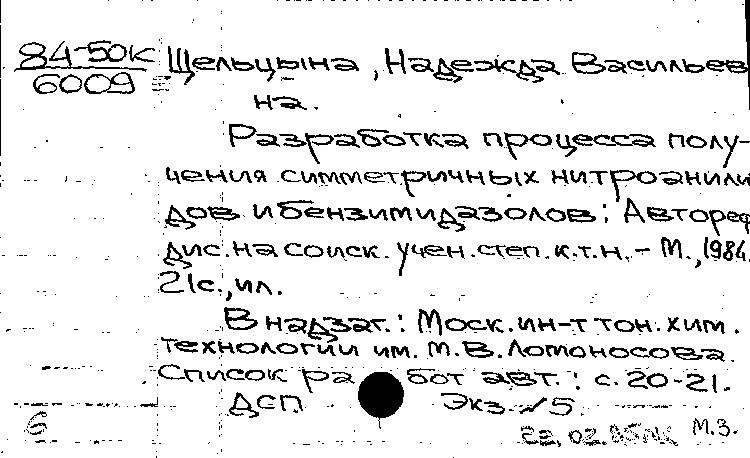 84-50к Щельцына, Надежда Васильев
6009 на.
Разработка процесса полу-
чения симметричных нитроанили
дов и бензимидазолов: Автореф
дис. на соиск. учен. степ. к.т.н. - М., 1984.
21с., ил.
В надзаг.: Моск. ин-т тон. хим.
технологии им. М.В. Ломоносова.
Список работ авт.: с. 20-21.
ДСП Экз. №5
6 22.02.85 М.З.